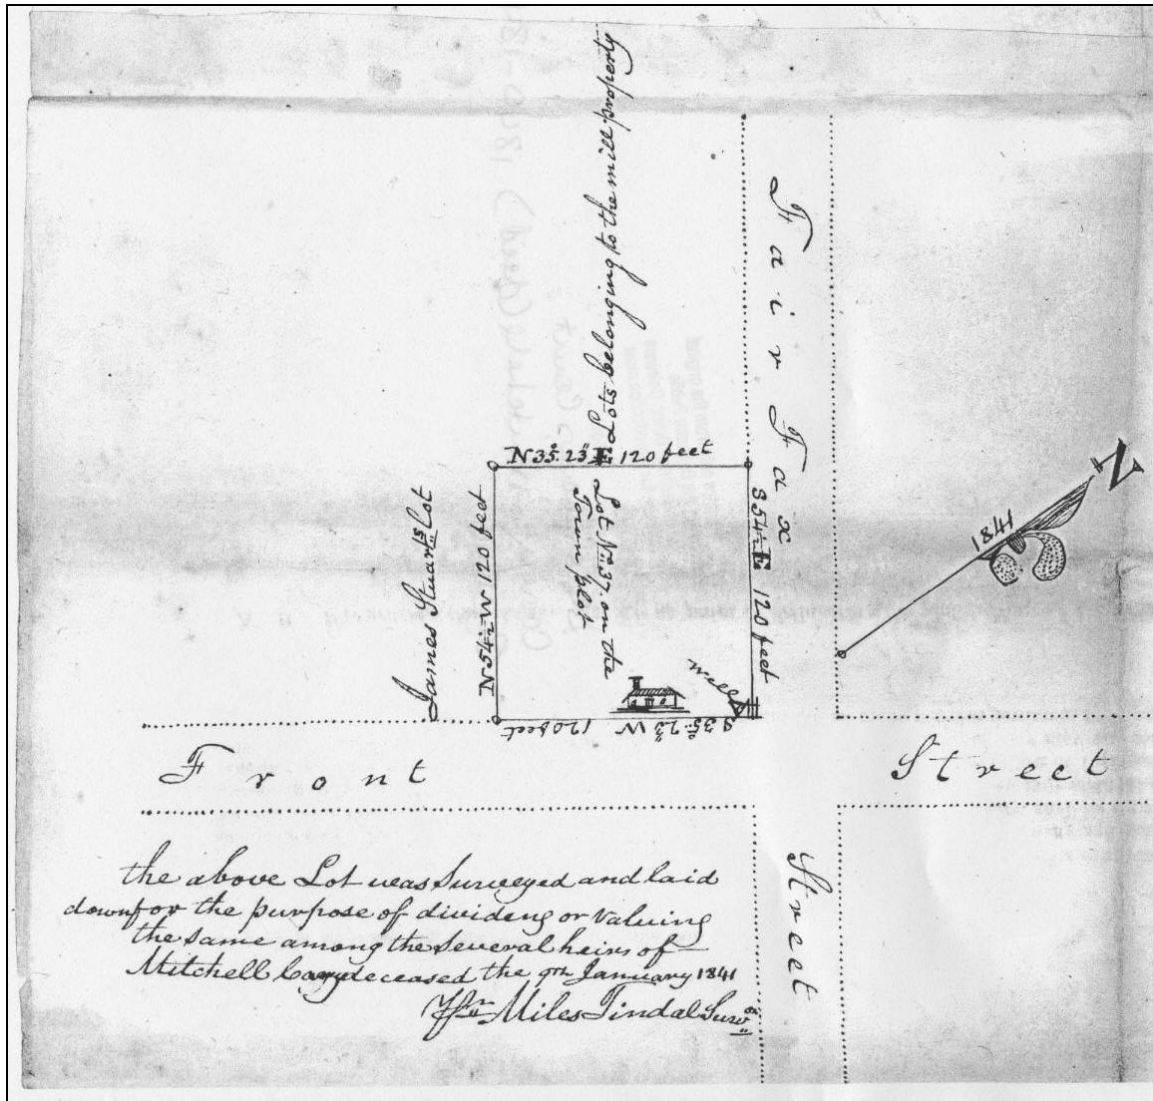 Lots belonging to the mill property
Fair Fax
N 35° 23" E 120 feet
James Stuart's Lot
N 54½ W 120 feet
Lot No 37 in the
Town plot
S 54½ E 120 feet
well
S 35° 23" W 120 feet
1841
N
Front Street
Street
the above Lot was Surveyed and laid
down for the purpose of divideng or valuing
the same among the several heirs of
Mitchell deceased the 9th January 1841
Miles Tindal Survr